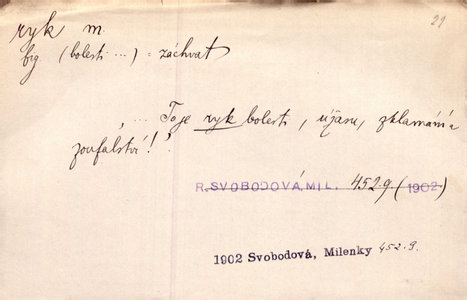 21
ryk m.
fig (bolesti ...) = záchvat
"... To je ryk bolesti, úžasu, zklamání a
zoufalství!"
R. SVOBODOVÁ, MIL. 452.9. (1902)
1902 Svobodová, Milenky 452.9.